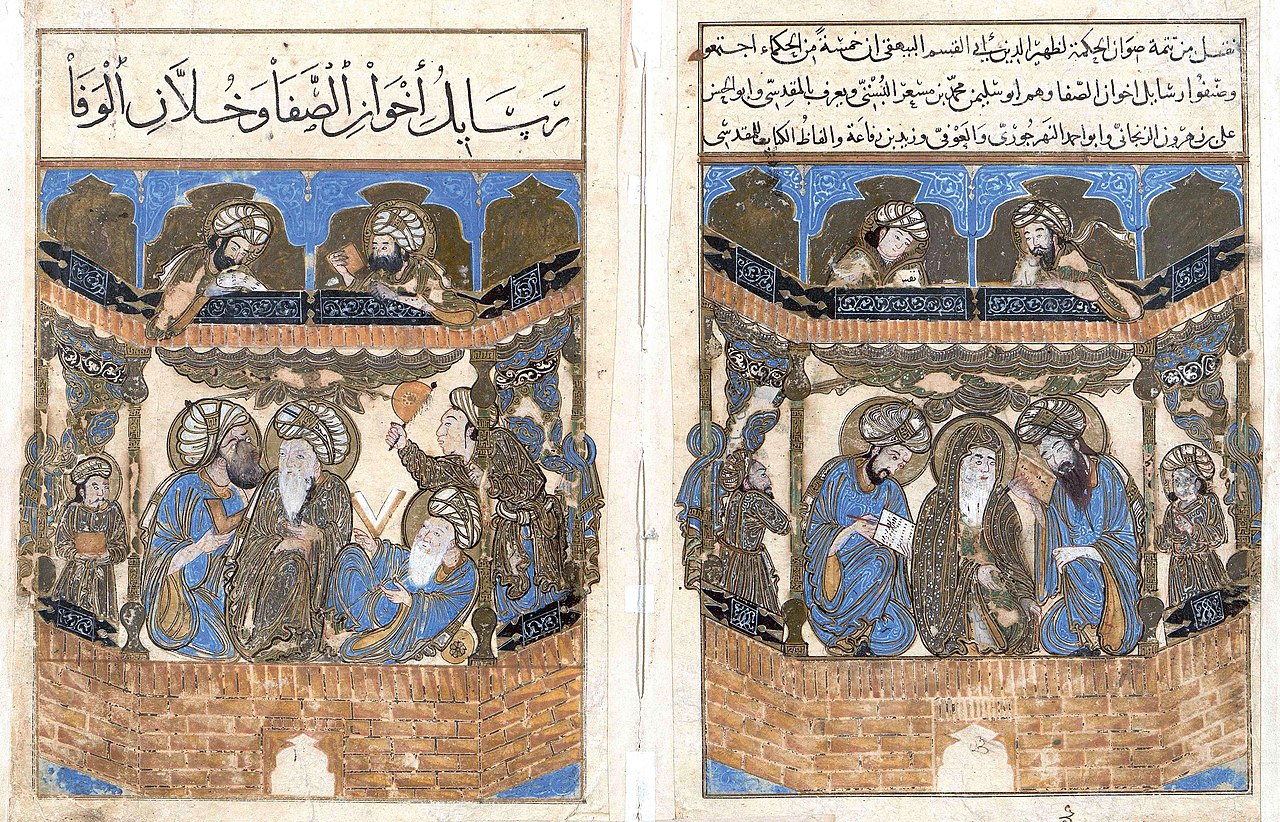 نقل من تتمة صوان الحكمة لظهير الدين أبي القسم البيهقي ان خمسة من الحكماء اجتمعو
وصنفوا رسايل أخوان الصفا وهم ابو سليمن محمد بن مسعر البستي ويعرف بالمقدسي وابو الحسن
علي بن هرون الزنجاني وابو احمد النهرجوري والعوفي وزيد بن رفاعة والفاظ الكتاب للمقدسي
رَسَايلُ أخْوَانِ الصَّفَاْ وَخُلاَّنِ الْوَفَاْ